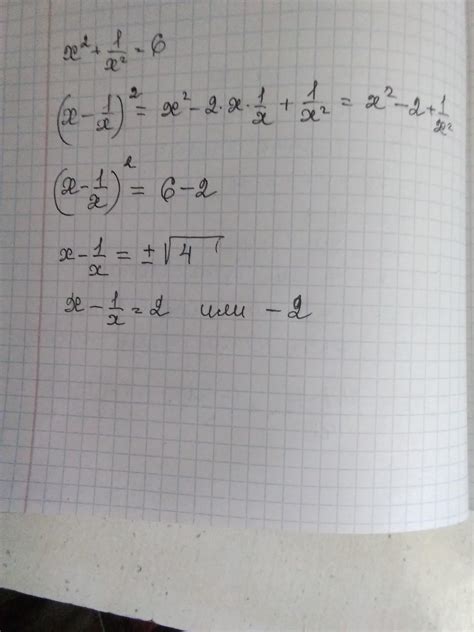 x² + 1/x² = 6
(x - 1/x)² = x² - 2·x·1/x + 1/x² = x² - 2 + 1/x²
(x - 1/x)² = 6 - 2
x - 1/x = ±√4
x - 1/x = 2 или - 2